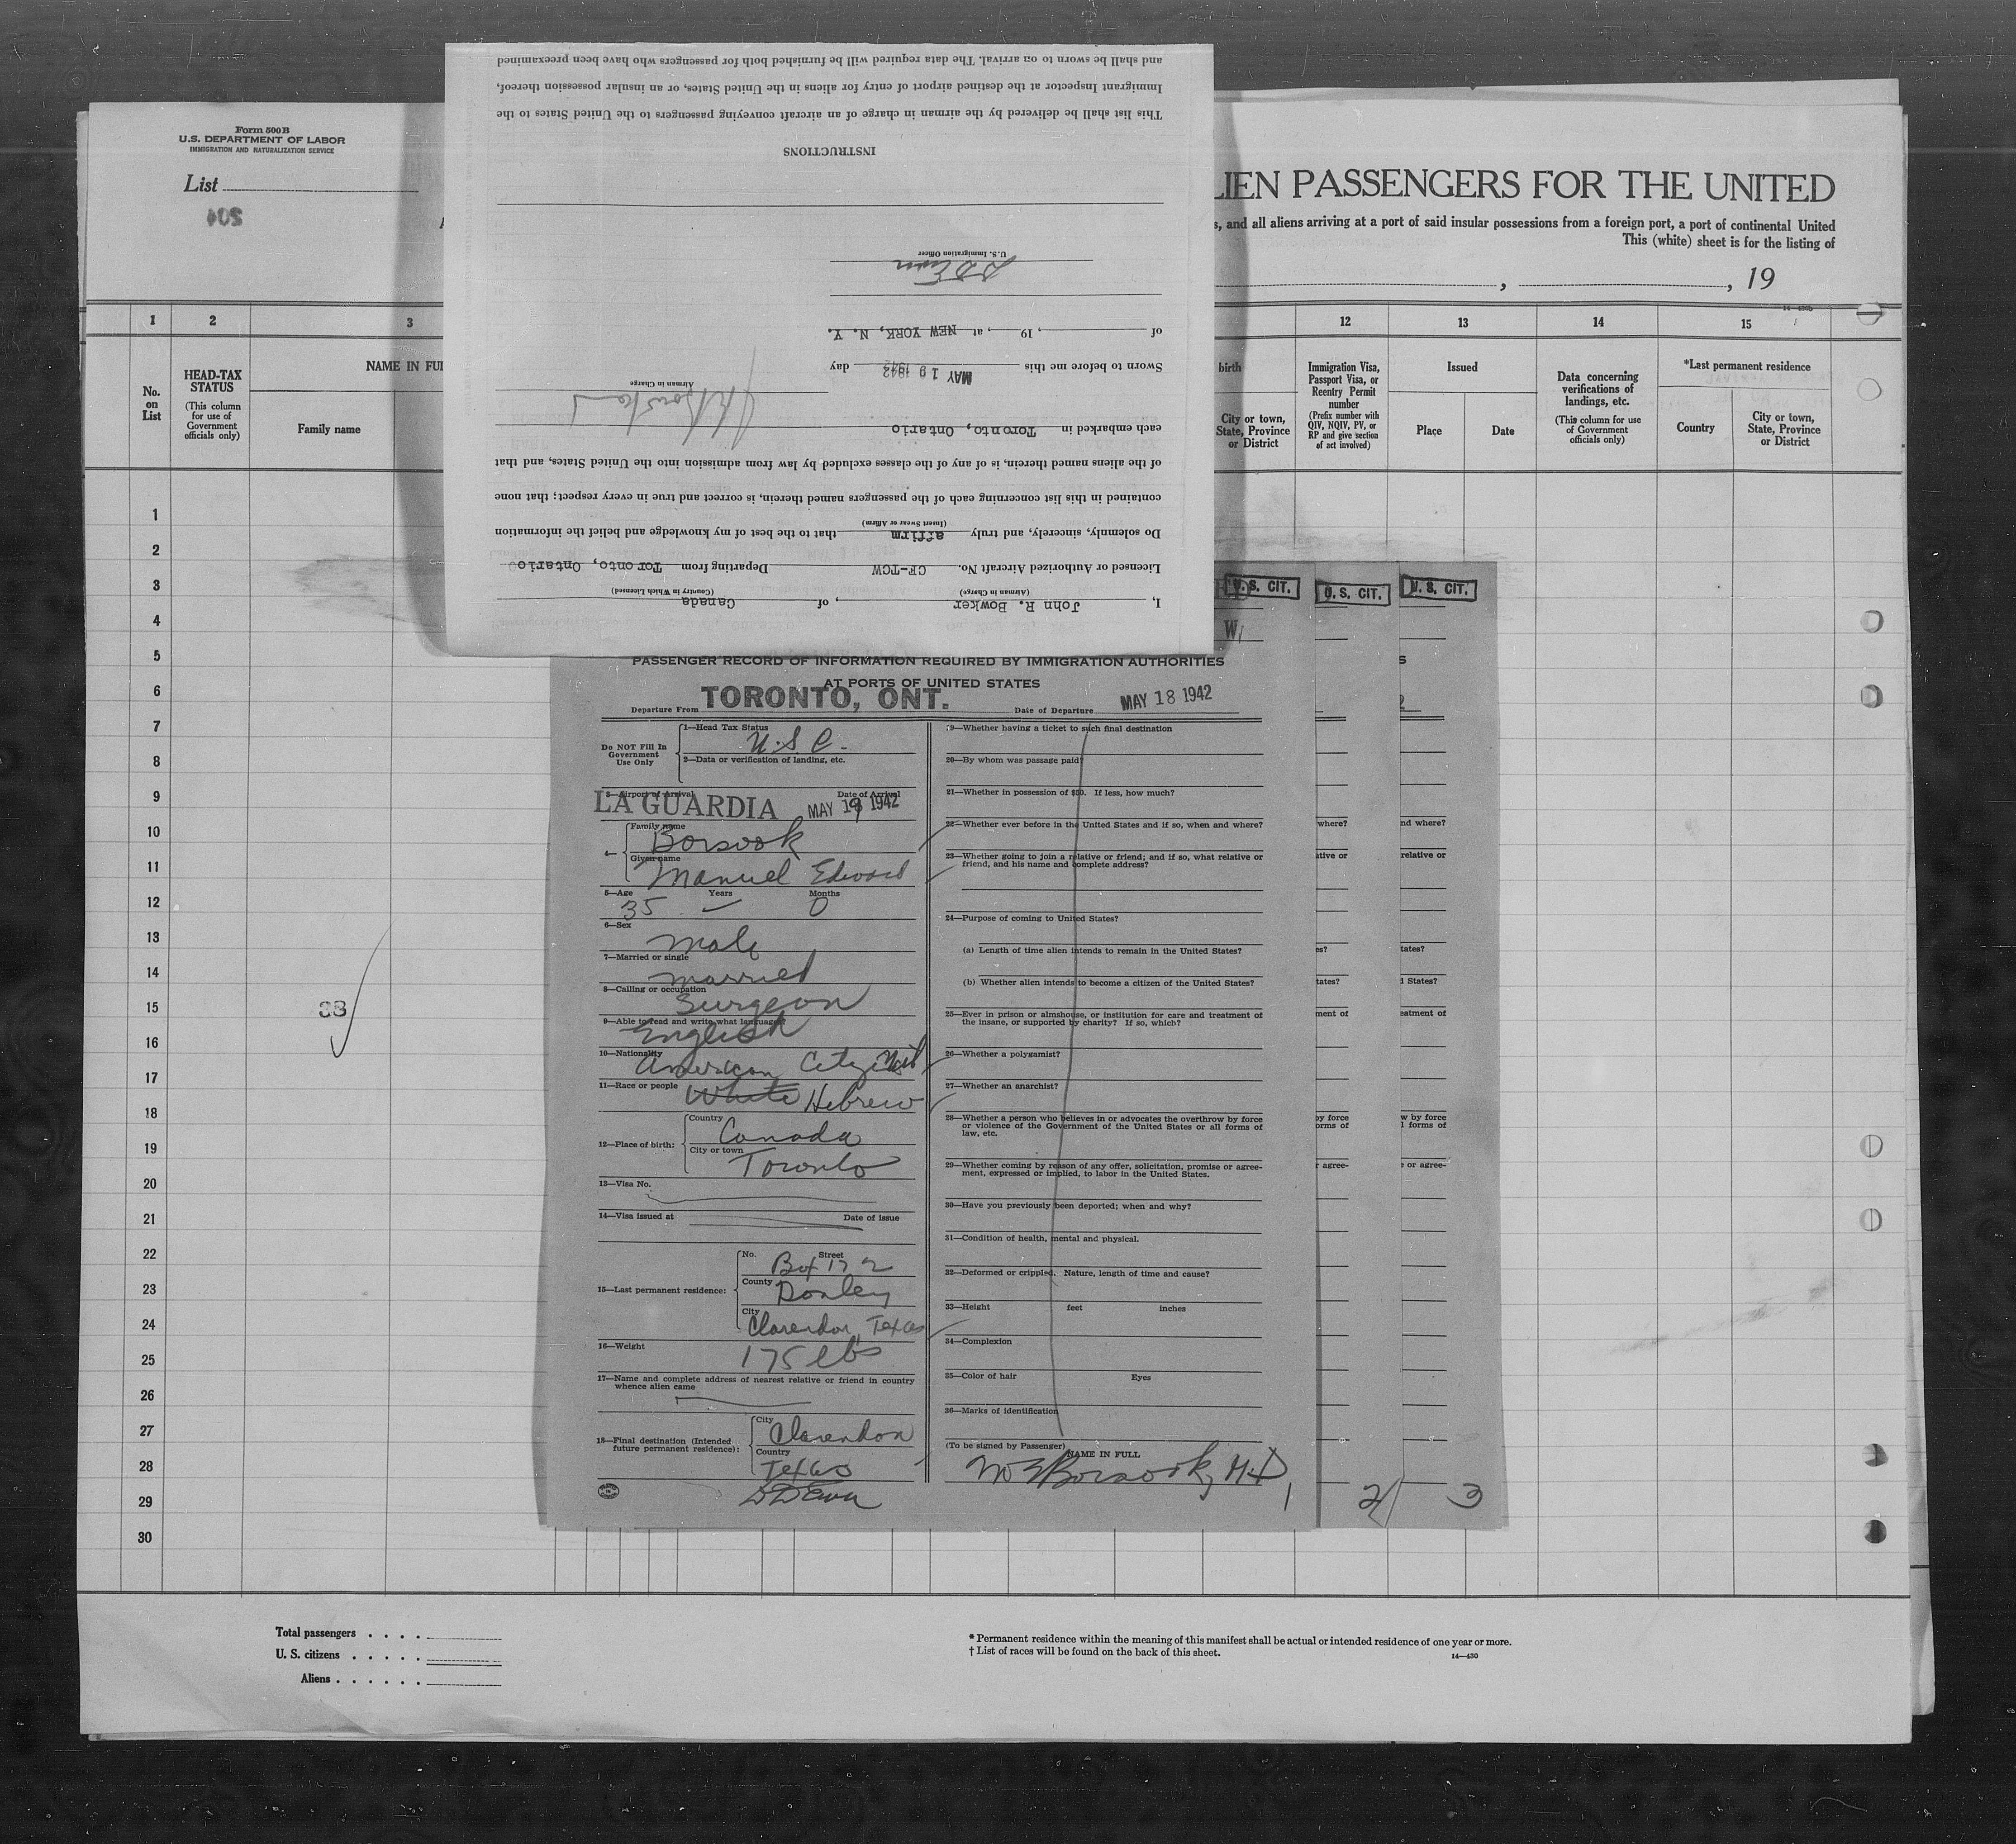 and shall be sworn to on arrival. The data required will be furnished both for passengers who have been preexamined
Immigrant Inspector at the destined airport of entry for aliens in the United States, or an insular possession thereof,
This list shall be delivered by the airman in charge of an aircraft conveying passengers to the United States to the
INSTRUCTIONS
U.S. Immigration Officer
of , 19 , at NEW YORK, N. Y.
Sworn to before me this MAY 19 1942 day
Airman in Charge
each embarked in Toronto, Ontario
of the aliens named therein, is of any of the classes excluded by law from admission into the United States, and that
contained in this list concerning each of the passengers named therein, is correct and true in every respect; that none
(Insert Swear or Affirm)
Do solemnly, sincerely, and truly affirm that to the best of my knowledge and belief the information
Licensed or Authorized Aircraft No. CF-TCW Departing from Toronto, Ontario
(Airman in Charge) (Country in Which Licensed)
I, John R. Bowker , of Canada
Form 500B
U.S. DEPARTMENT OF LABOR
IMMIGRATION AND NATURALIZATION SERVICE
List
204
LIEN PASSENGERS FOR THE UNITED
s, and all aliens arriving at a port of said insular possessions from a foreign port, a port of continental United
This (white) sheet is for the listing of
, , 19
1 2 3 12 13 14 15
No. on List
HEAD-TAX STATUS
(This column for use of Government officials only)
NAME IN FUL
Family name
birth
City or town, State, Province or District
Immigration Visa, Passport Visa, or Reentry Permit number
(Prefix number with QIV, NQIV, PV, or RP and give section of act involved)
Issued
Place
Date
Data concerning verifications of landings, etc.
(This column for use of Government officials only)
*Last permanent residence
Country
City or town, State, Province or District
1
2
3
4
5
6
7
8
9
10
11
12
13
14
15
16
17
18
19
20
21
22
23
24
25
26
27
28
29
30
33
U.S. CIT.
U.S. CIT.
U.S. CIT.
W
PASSENGER RECORD OF INFORMATION REQUIRED BY IMMIGRATION AUTHORITIES
AT PORTS OF UNITED STATES
Departure From TORONTO, ONT. Date of Departure MAY 18 1942
Do NOT Fill In Government Use Only
1—Head Tax Status
U.S.C.
2—Data or verification of landing, etc.
3—Airport of Arrival Date of Arrival
LA GUARDIA MAY 19 1942
4—
Family name
Borsook
Given name
Manuel Edward
5—Age Years Months
35 0
6—Sex
male
7—Married or single
married
8—Calling or occupation
Surgeon
9—Able to read and write what language?
English
10—Nationality
American Citizen
11—Race or people White Hebrew
12—Place of birth:
Country
Canada
City or town
Toronto
13—Visa No.
14—Visa issued at Date of issue
15—Last permanent residence:
No. Street
Box 172
County
Donley
City
Clarendon, Texas
16—Weight
175 lbs
17—Name and complete address of nearest relative or friend in country
whence alien came
18—Final destination (Intended
future permanent residence):
City
Clarendon
Country
Texas
19—Whether having a ticket to such final destination
20—By whom was passage paid?
21—Whether in possession of $50. If less, how much?
22—Whether ever before in the United States and if so, when and where?
23—Whether going to join a relative or friend; and if so, what relative or
friend, and his name and complete address?
24—Purpose of coming to United States?
(a) Length of time alien intends to remain in the United States?
(b) Whether alien intends to become a citizen of the United States?
25—Ever in prison or almshouse, or institution for care and treatment of
the insane, or supported by charity? If so, which?
26—Whether a polygamist?
27—Whether an anarchist?
28—Whether a person who believes in or advocates the overthrow by force
or violence of the Government of the United States or all forms of
law, etc.
29—Whether coming by reason of any offer, solicitation, promise or agree-
ment, expressed or implied, to labor in the United States.
30—Have you previously been deported; when and why?
31—Condition of health, mental and physical.
32—Deformed or crippled. Nature, length of time and cause?
33—Height feet inches
34—Complexion
35—Color of hair Eyes
36—Marks of identification
(To be signed by Passenger)
NAME IN FULL
M E Borsook, M.D.
1
2
3
where?
ative or
es?
tates?
ment of
by force
orms of
r agree-
nd where?
relative or
tates?
d States?
eatment of
w by force
l forms of
e or agree-
Total passengers . . . .
U. S. citizens . . . . .
Aliens . . . . . .
* Permanent residence within the meaning of this manifest shall be actual or intended residence of one year or more.
† List of races will be found on the back of this sheet.
14—430